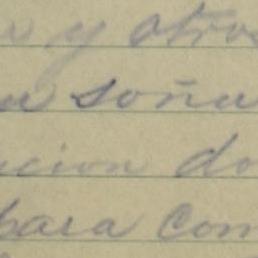 y otros
u soña
cion do
para com